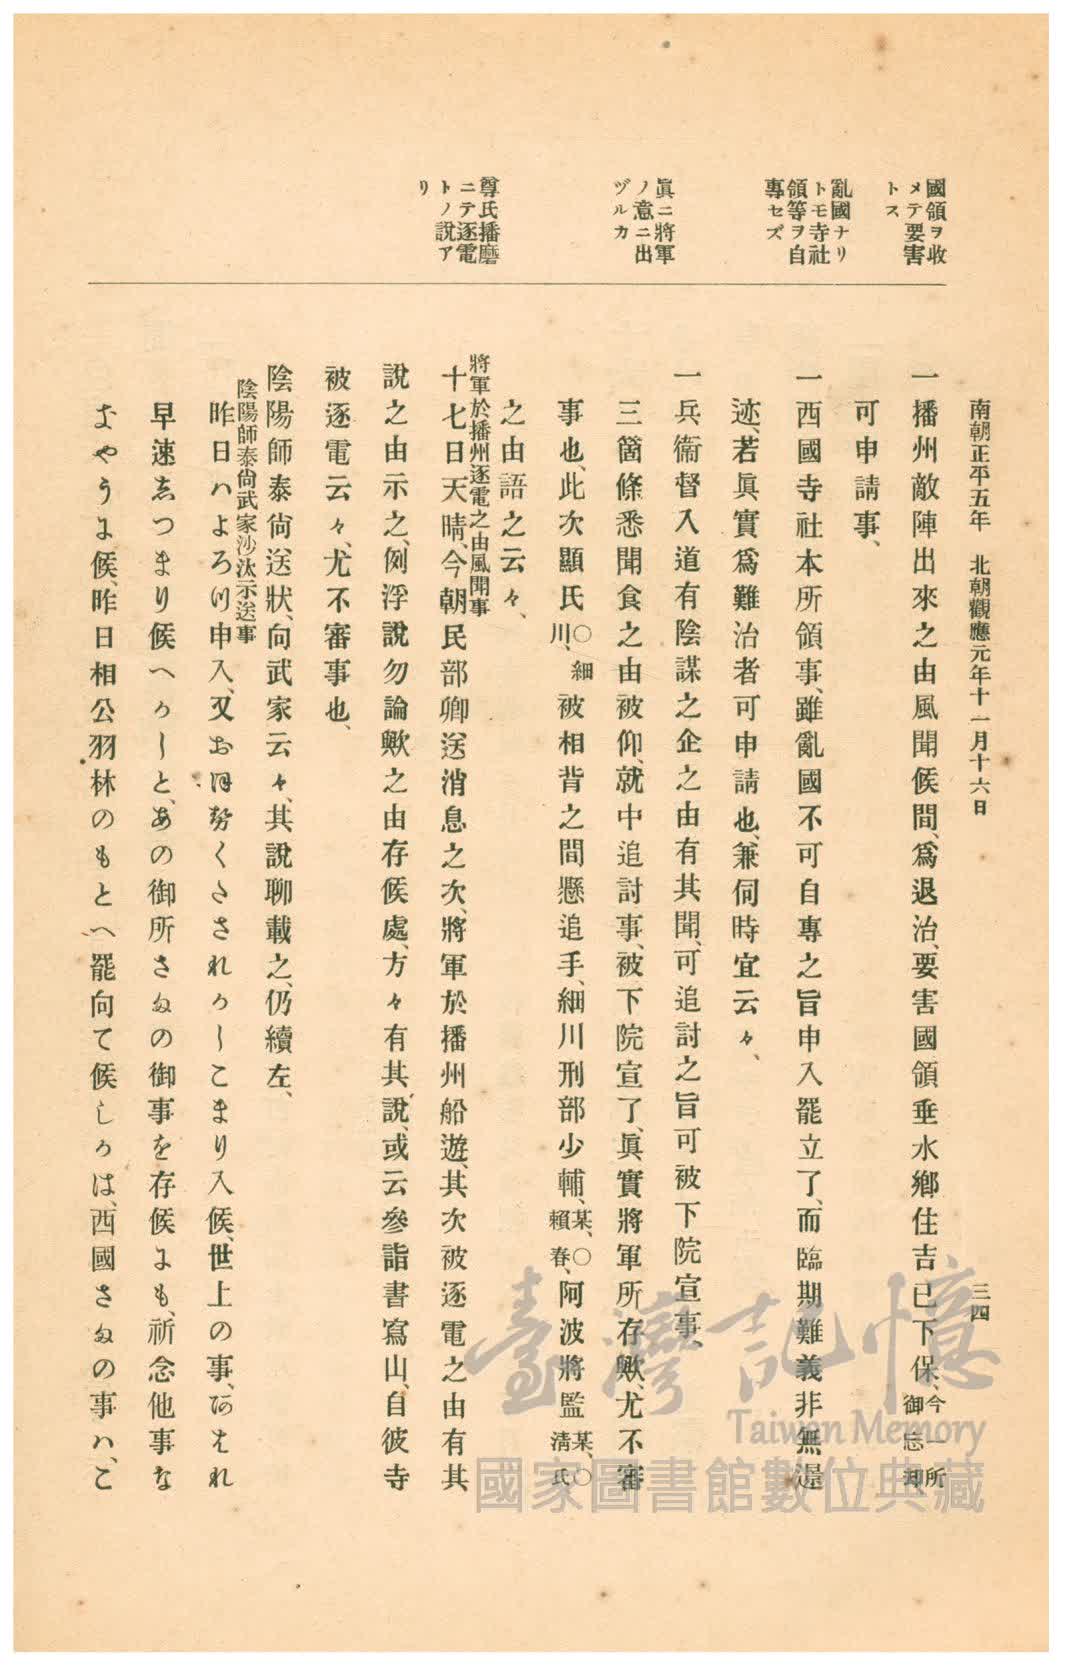 南朝正平五年　北朝觀應元年十一月十六日
三四
國領ヲ收
メテ要害
トス
亂國ナリ
トモ寺社
領等ヲ自
專セズ
眞ニ將軍
ノ意ニ出
ヅルカ
尊氏播磨
ニテ逐電
トノ說ア
リ
一播州敵陣出來之由風聞候間、爲退治、要害國領垂水鄕住吉已下保、今一所御忘却
可申請事、
一西國寺社本所領事、雖亂國不可自專之旨申入罷立了、而臨期難義非無邊
迹、若眞實爲難治者可申請也、兼伺時宜云々、
一兵衞督入道有陰謀之企之由有其聞、可追討之旨可被下院宣事、
三箇條悉聞食之由被仰、就中追討事、被下院宣了、眞實將軍所存歟、尤不審
事也、此次顯氏○細川、被相背之間懸追手、細川刑部少輔、某、○賴春、阿波將監某、○淸氏
之由語之云々、
將軍於播州逐電之由風聞事
十七日天晴、今朝民部卿送消息之次、將軍於播州船遊、其次被逐電之由有其
說之由示之、例浮說勿論歟之由存候處、方々有其說、或云參詣書寫山、自彼寺
被逐電云々、尤不審事也、
陰陽師泰尙送狀、向武家云々、其說聊載之、仍續左、
陰陽師泰尙武家沙汰示送事
昨日ハよろつ申入、又おほせくたされかしこまり入候、世上の事、あきれ
早速志つまり候へかしと、あの御所さまの御事を存候にも、祈念他事な
きやうに候、昨日相公羽林のもとへ罷向て候しかは、西國さまの事ハ、こ
臺灣記憶
Taiwan Memory
國家圖書館數位典藏